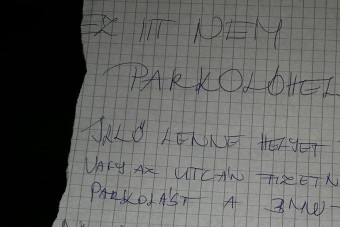 EZ ITT NEM
PARKOLÓHEL
JELŐ LENNE HELYET
VAGY AZ UTCÁN FIZETN
PARKOLÁST A